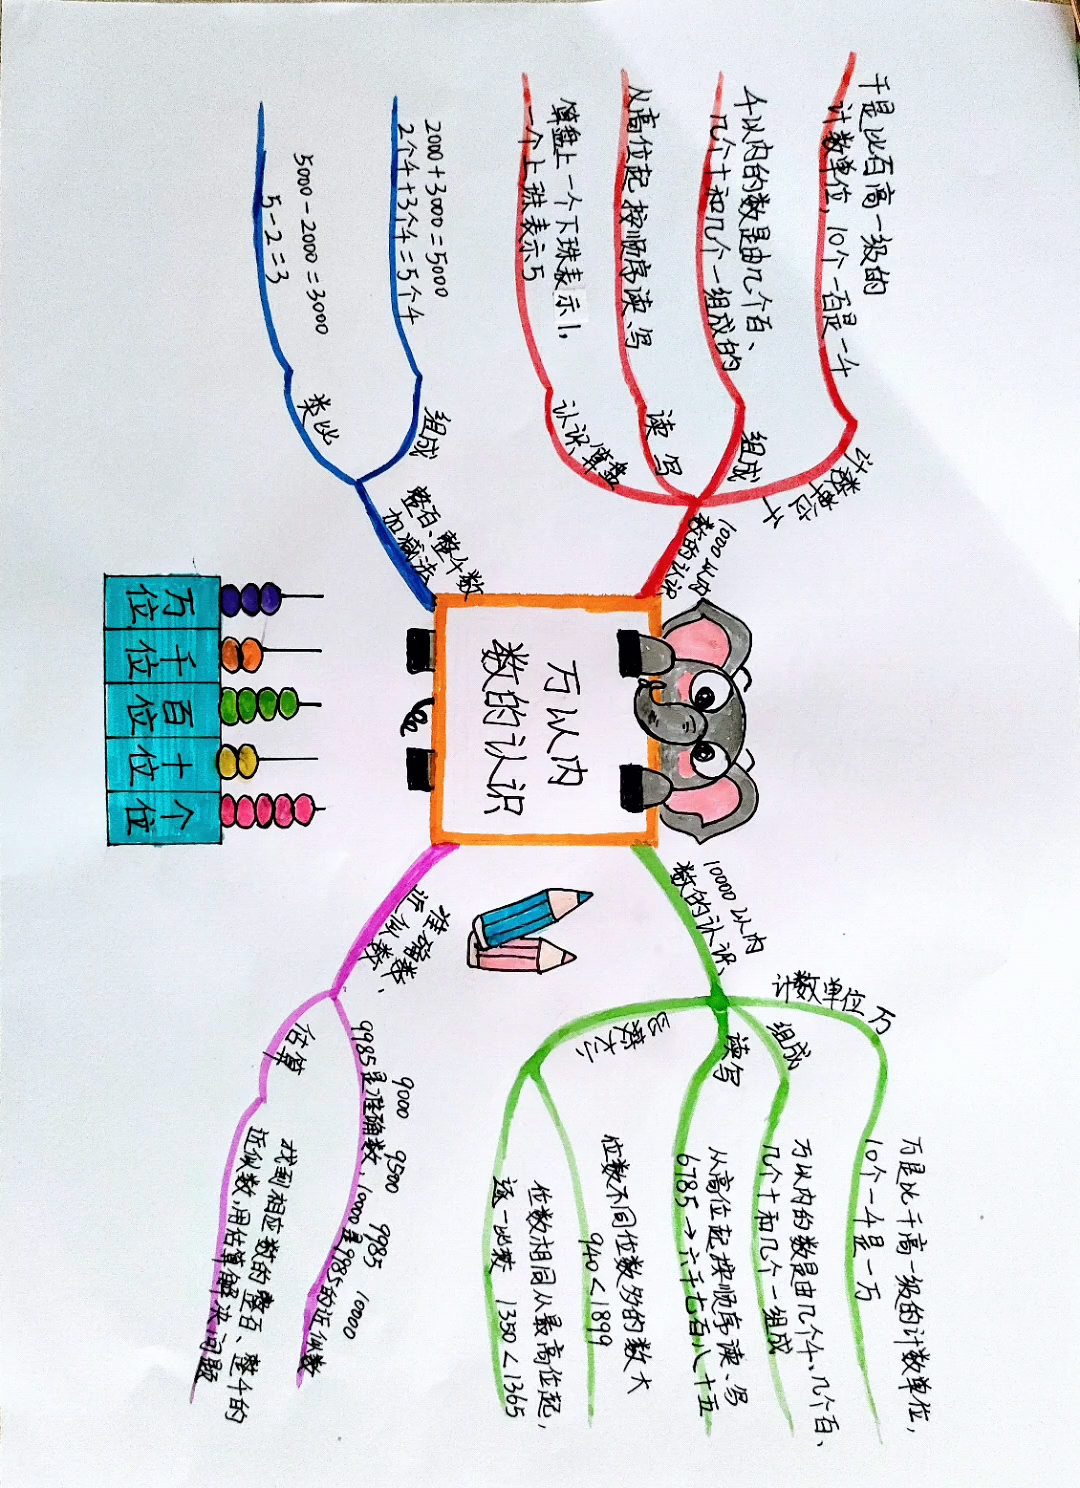 万以内
数的认识
1000以内
数的认识
计数单位千
千是比百高一级的
计数单位,10个一百是一千
组成
千以内的数是由几个百、
几个十和几个一组成的
读写
从高位起按顺序读、写
认识算盘
算盘上一个下珠表示1,
一个上珠表示5
整百、整千数
加减法
组成
2000+3000=5000
2个千+3个千=5个千
类比
5000-2000=3000
5-2=3
10000以内
数的认识、
计数单位万
万是比千高一级的计数单位,
10个一千是一万
组成
万以内的数是由几个千、几个百、
几个十和几个一组成
读写
从高位起按顺序读、写
6785→六千七百八十五
比较大小
位数不同位数多的数大
940<1899
位数相同从最高位起,
逐一比较 1350<1365
准确数、
近似数
9000 9500 9985 10000
9985是准确数,10000是9985的近似数
估算
找到相应数的整百、整千的
近似数,用估算解决问题
万位 千位 百位 十位 个位